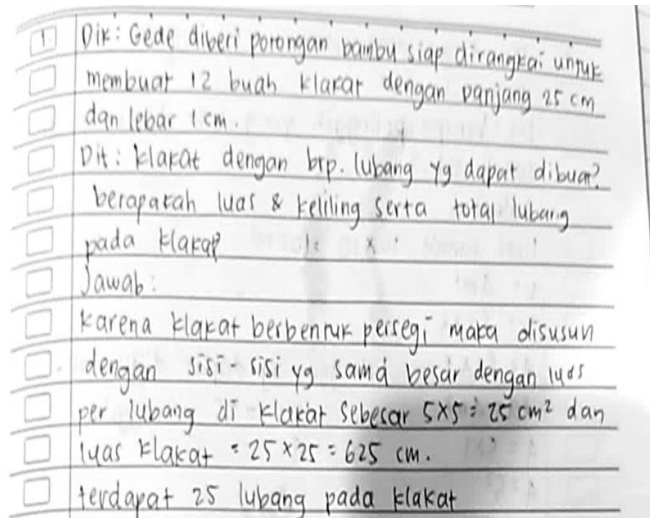 1. Dik: Gede diberi potongan bambu siap dirangkai untuk
membuat 12 buah klakat dengan panjang 25 cm
dan lebar 1 cm.
Dit: klakat dengan brp. lubang yg dapat dibuat?
berapakah luas & keliling serta total lubang
pada klakat?
Jawab:
Karena klakat berbentuk persegi maka disusun
dengan sisi-sisi yg sama besar dengan luas
per lubang di klakat sebesar 5x5 = 25 cm² dan
luas klakat = 25 x 25 = 625 cm.
terdapat 25 lubang pada klakat